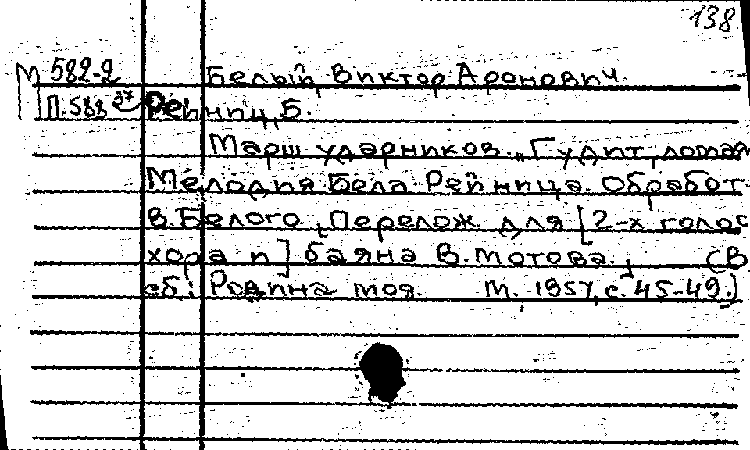 138
М 582-2 Белый, Виктор Аронович.
П.588 Рейниц, Б.
Марш ударников. „Гудит, ломая
Мелодия Бела Рейница. Обработ.
В. Белого, Перелож для [2-х голос
хора и] баяна В. Мотова. (В
сб: Родина моя. М. 1957, с. 45-49.)